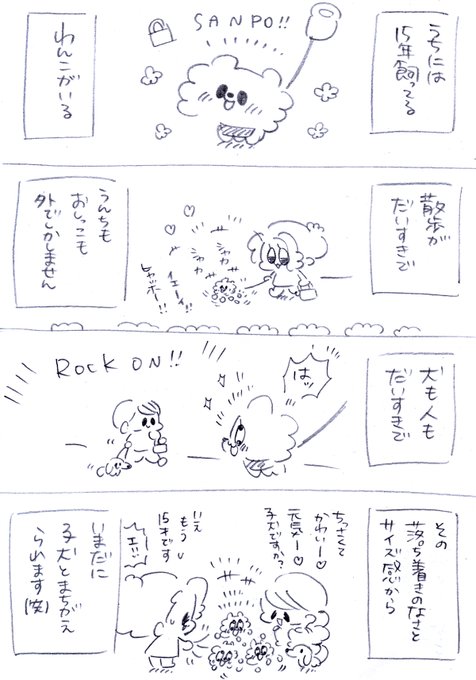 うちには
15年飼ってる
SANPO!!
わんこがいる
散歩が
だいすきで
シャカ
シャカ
イエーイ!!
ヒャッホー!!
うんちも
おしっこも
外でしかしません
犬も人も
だいすきで
はっ
ROCK ON!!
その
落ち着きのなさと
サイズ感から
ちっさくて
かわいー♡
元気ー♡
子犬ですか?
いえ
もう
15才です
えーー!!
いまだに
子犬とまちがえ
られます(笑)